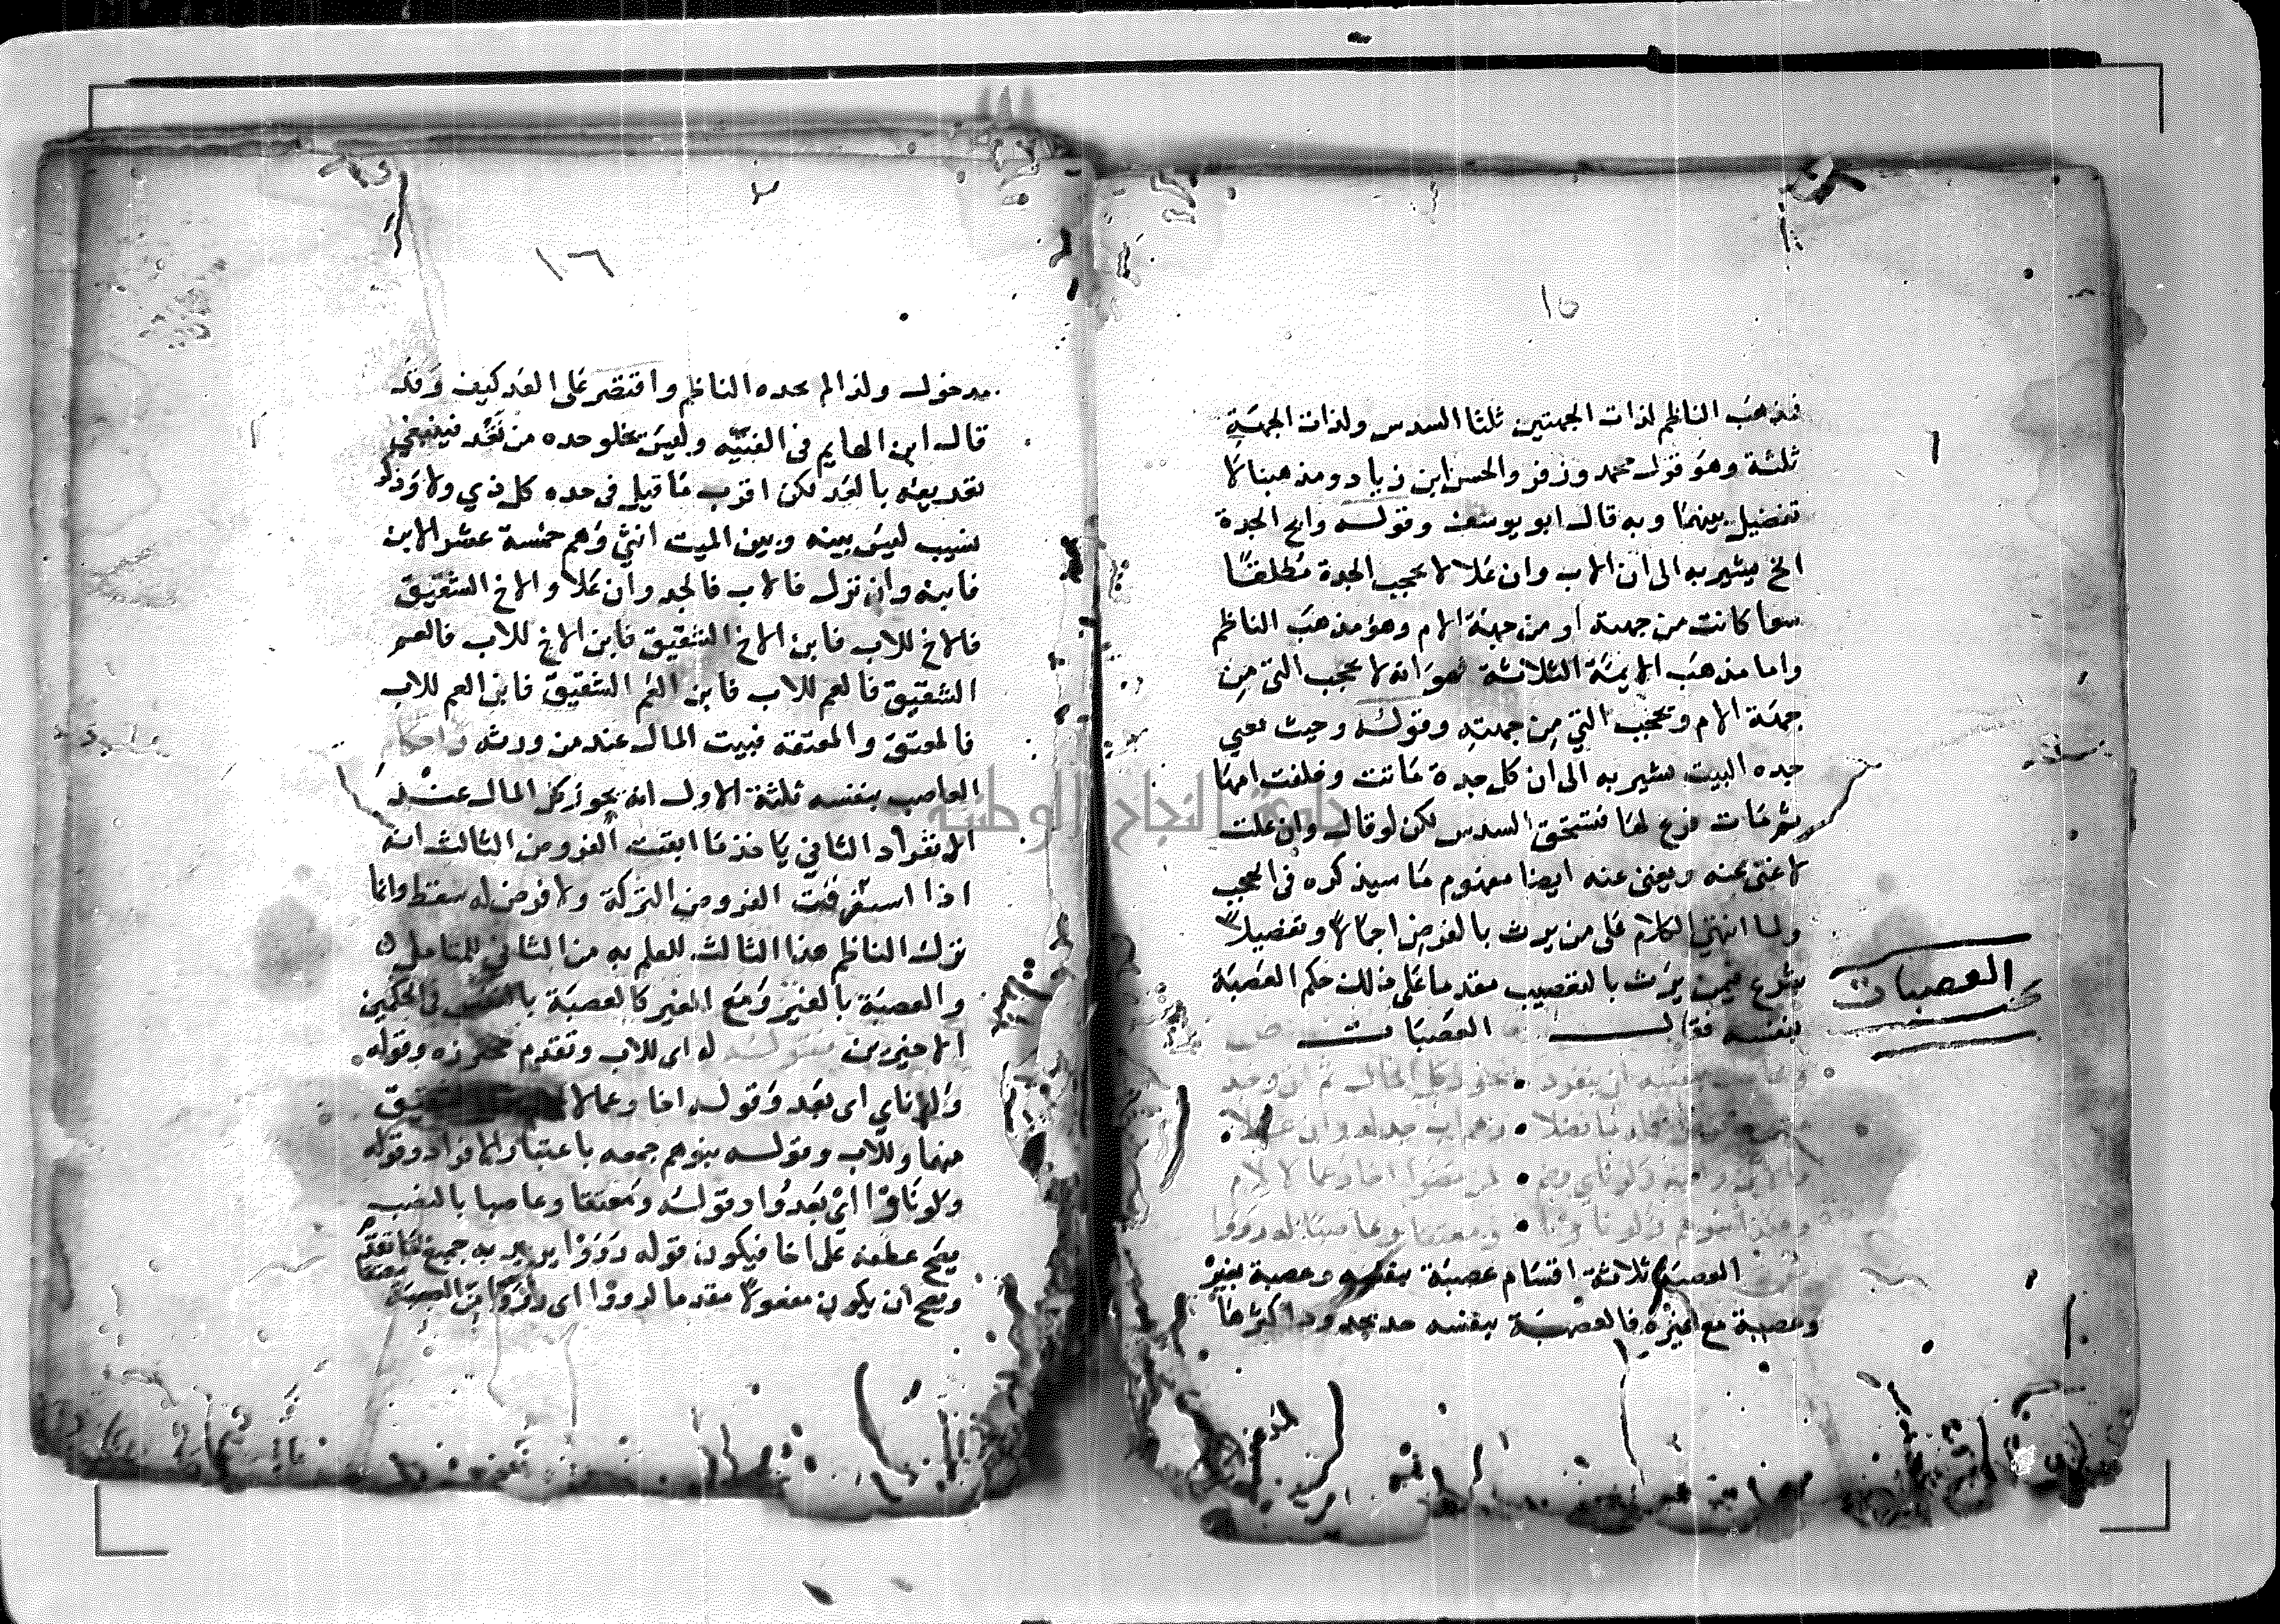 ١٥
فمذهب الناظم لذات الجهتين ثلثا السدس ولذات الجهة
ثلثة وهو قول محمد وزفر والحسن ابن زياد ومذهبنا لا
تفضيل بينهما وبه قال ابو يوسف وقوله واب الجدة
الخ يشير به الى ان الاب وان علا لا يحجب الجدة مطلقا
سوا كانت من جهته او من جهة الام وهو مذهب الناظم
واما مذهب الايمة الثلاثة فهو انه لا يحجب التي من
جهة الام ويحجب التي من جهته وقوله وحيث تعي
جده البيت يشير به الى ان كل جدة ماتت وخلفت امها
ثم مات فرع لها فتستحق السدس لكن لو قال وان علت
لاغنى عنه ويغنى عنه ايضا مفهوم ما سيذكره في الحجب
ولما انتهى الكلام على من يرث بالفرض اجمالا وتفصيلا
شرع فيمن يرث بالتعصيب مقدما على ذلك حكم العصبة
العصبات
بنفسه فقال العصبات
ان ينفرد • يحوز كل المال ثم ان وجد
ما فضلا • وهم اب جد له وان علا
والابن وابنه ولو ناى وهم • اخا وعما لا لام
وهكذا بنوهم ولو ناوا • ومعتقا وعاصبا له رووا
العصبة ثلاثة اقسام عصبة بنفسه وعصبة بغيره
وعصبة مع غيره فالعصبة بنفسه حد بحدود اكثرها
١٦
مدخول ولذا لم يحده الناظم واقتصر على العد كيف وقد
قال ابن الهايم في الفيه وليس يخلو حده من نقد فينبغي
تعريفه بالعد لكن اقرب ما قيل في حده كل ذي ولا وذكر
نسيب ليس بينه وبين الميت انثى وهم خمسة عشر الابن
فابنه وان نزل فالاب فالجد وان علا والاخ الشقيق
فالاخ للاب فابن الاخ الشقيق فابن الاخ للاب فالعم
الشقيق فالعم للاب فابن العم الشقيق فابن العم للاب
فالمعتق والمعتقة فبيت المال عند من ورثه واحكام
العاصب بنفسه ثلثة الاول انه يحوز كل المال عند
الانفراد الثاني ياخذ ما ابقت الفروض الثالث انه
اذا استغرقت الفروض التركة ولا فرض له سقط وانما
ترك الناظم هذا الثالث للعلم به من الثاني للمتامل
والعصبة بالغير ومع الغير كالعصبة بالنفس في الحكمين
الاخيرين له اى للاب وتقدم محترزه وقوله
والناي اى بعد وقوله اخا وعما لا الشقيق
منهما وللاب وقوله بنوهم جمعه باعتبار الافراد وقوله
ولو ناوا اى بعدوا وقوله ومعتقا وعاصبا بالنصب
يصح عطفه على اخا فيكون قوله رووا يريد به جميع ما تقدم
ويصح ان يكون مفعولا مقدما لرووا اى رووا من العصبة
معتقا